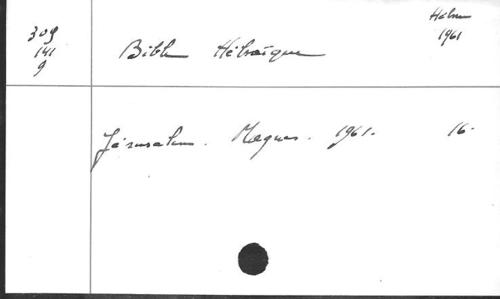 309
141
9
Bible Hébraïque
Hébreu
1961
Jérusalem. Magnes. 1961. 16.